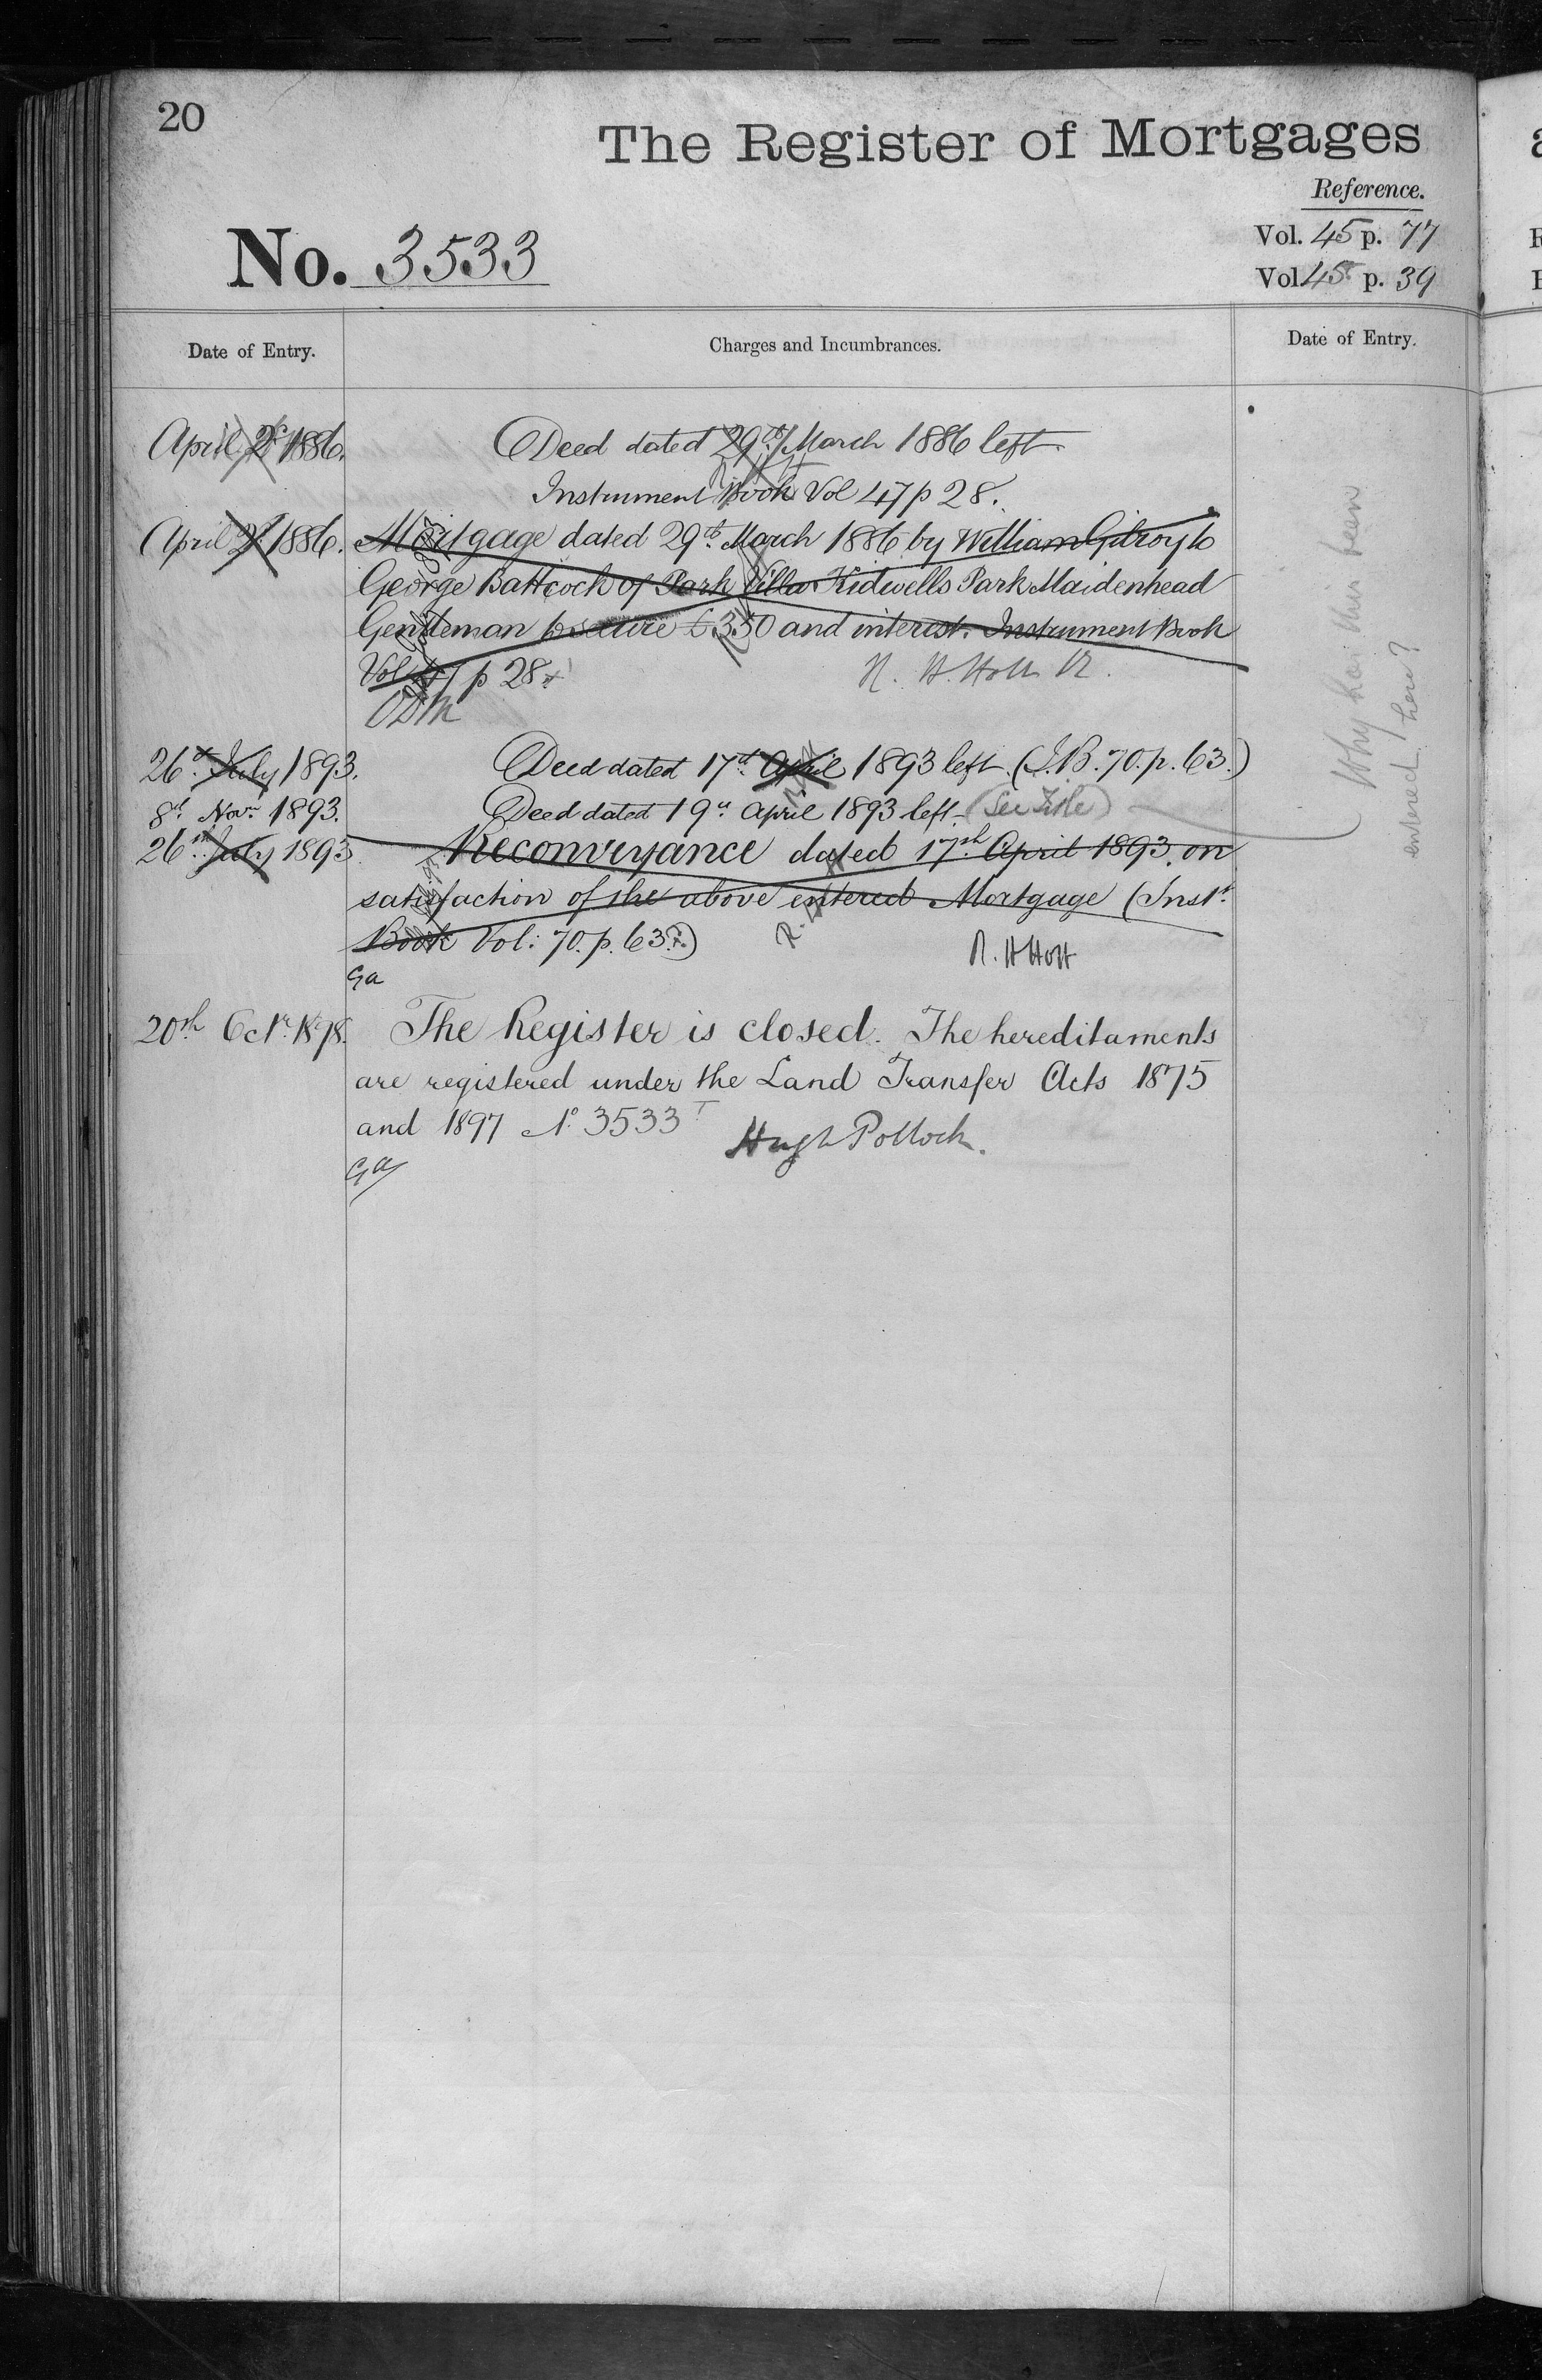 20
The Register of Mortgages
Reference.
Vol. 45 p. 77
No. 3533
Vol. 45 p. 39
Date of Entry.
Charges and Incumbrances.
Date of Entry.
April 2d 1886.
Deed dated 29th March 1886 left.
Instrument Book Vol 47 p 28.
April 2d 1886.
Mortgage dated 29th March 1886 by William Gilroy to
George Battcock of Park Villa Kidwells Park Maidenhead
Gentleman to secure £350 and interest. Instrument Book
Vol 47 p 28.
R. H. Holt
26th July 1893.
Deed dated 17th April 1893 left. (I.B. 70. p. 63.)
8th Novr 1893.
Deed dated 19th April 1893 left. (See Title)
Why has this been
entered here?
26th July 1893
Reconveyance dated 17th April 1893. on
satisfaction of the above entered Mortgage (Inst.
Book Vol: 70. p. 63.)
R. H Holt
Ga
20th Octr. 1898.
The Register is closed. The hereditaments
are registered under the Land Transfer Acts 1875
and 1897 No 3533 T
Hugh Pollock.
Ga